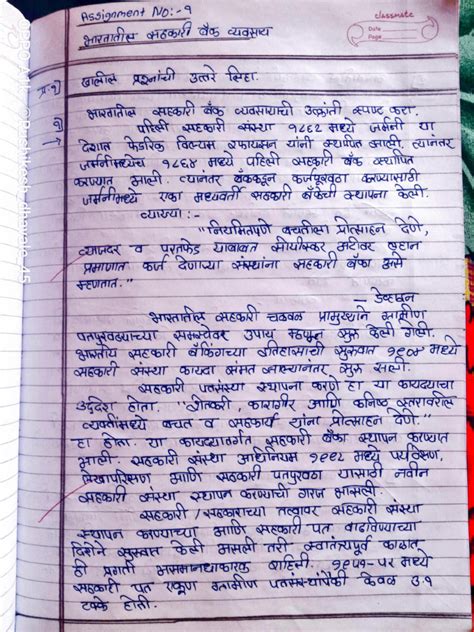 Assignment No:- १
classmate
Date
Page
भारतातील सहकारी बँक व्यवसाय
प्र.१) खालील प्रश्नांची उत्तरे लिहा.
१) भारतातील सहकारी बँक व्यवसायाची उत्क्रांती स्पष्ट करा.
→ पहिली सहकारी संस्था १८६२ मध्ये जर्मनी या
देशात फेडरिक विल्यम रफायसन यांनी स्थापित झाली. त्यानंतर
जर्मनीमध्येच १८६४ मध्ये पहिली सहकारी बँक स्थापित
करण्यात आली. त्यानंतर बँककडून कर्जपुरवठा करण्यासाठी
जर्मनीमध्ये एका मध्यवर्ती सहकारी बँकेची स्थापना केली.
व्याख्या :-
"नियमितपणे बचतीला प्रोत्साहन देणे,
व्याजदर व परतफेड याबाबत सोयीस्कर अटीवर लहान
प्रमाणात कर्ज देणाऱ्या संस्थांना सहकारी बँका असे
म्हणतात."
— डेव्हधन
भारतातील सहकारी चळवळ प्रामुख्याने ग्रामीण
पतपुरवठ्याच्या समस्येवर उपाय म्हणून सुरू केली गेली.
भारतीय सहकारी बँकिंगच्या इतिहासाची सुरुवात १९०४ मध्ये
सहकारी संस्था कायदा संमत झाल्यानंतर सुरू झाली.
सहकारी पतसंस्था स्थापना करणे हा या कायद्याचा
उद्देश होता. "शेतकरी, कारागीर आणि कनिष्ठ स्तरावरील
व्यक्तींमध्ये बचत व सहकार्य यांना प्रोत्साहन देणे."
हा होता. या कायद्यांतर्गत सहकारी बँका स्थापन करण्यात
आली. सहकारी संस्था अधिनियम १९१२ मध्ये पर्यवेक्षण,
लेखापरिक्षण आणि सहकारी पतपुरवठा यासाठी नवीन
सहकारी संस्था स्थापन करण्याची गरज भासली.
सहकारी / सहकाराच्या तत्वावर सहकारी संस्था
स्थापन करण्याच्या आणि सहकारी पत वाढविण्याच्या
दिशेने सुरुवात केली असली तरी, स्वातंत्र्यपूर्व काळात
ही प्रगती असमाधानकारक राहिली. १९५१-५२ मध्ये
सहकारी पत एकूण ग्रामीण पतसंस्थांपैकी केवळ ३.१
टक्के होती.